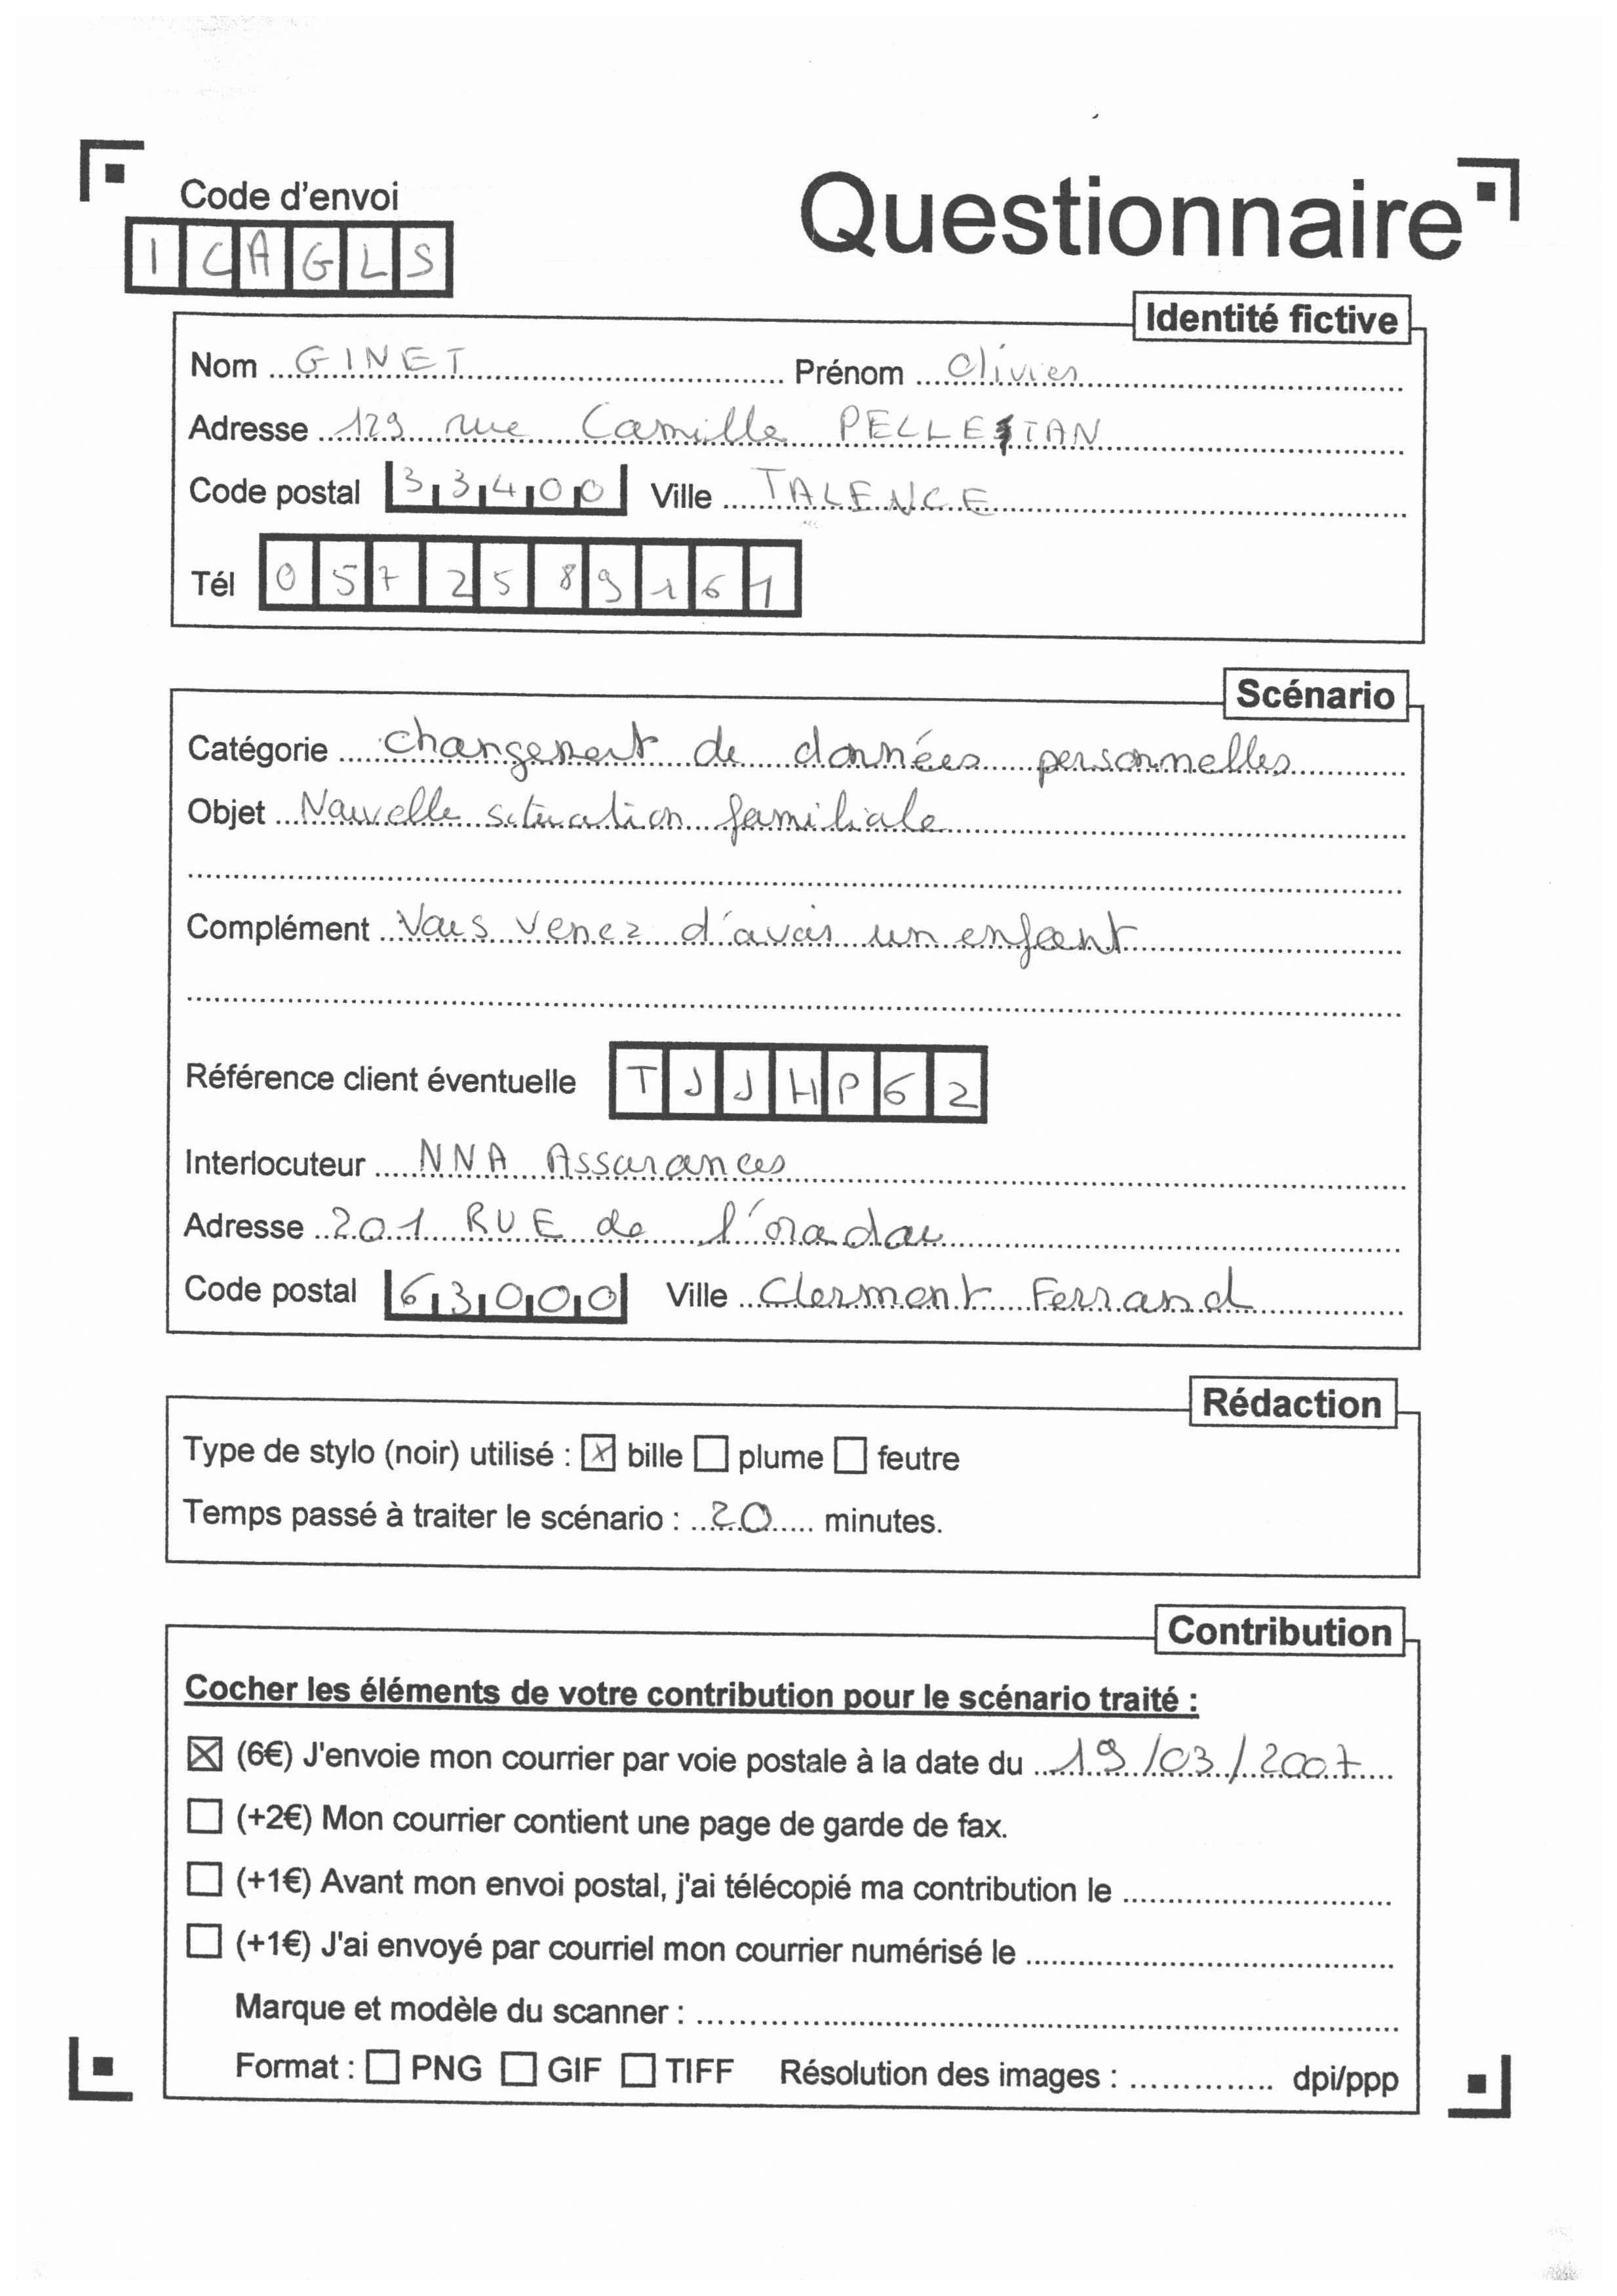 Code d'envoi
Questionnaire
ICAGLS
Identité fictive
Nom GINET Prénom Olivier
Adresse 129 rue Camille PELLETAN
Code postal 33400 Ville TALENCE
Tél 0572589161
Scénario
Catégorie changement de données personnelles
Objet Nouvelle situation familiale
Complément Vous venez d'avoir un enfant
Référence client éventuelle TJJHP62
Interlocuteur NNA Assurances
Adresse 201 RUE de l'oradou
Code postal 63000 Ville Clermont Ferrand
Rédaction
Type de stylo (noir) utilisé : ☒ bille ☐ plume ☐ feutre
Temps passé à traiter le scénario : 20 minutes.
Contribution
Cocher les éléments de votre contribution pour le scénario traité :
☒ (6€) J'envoie mon courrier par voie postale à la date du 19/03/2007
☐ (+2€) Mon courrier contient une page de garde de fax.
☐ (+1€) Avant mon envoi postal, j'ai télécopié ma contribution le
☐ (+1€) J'ai envoyé par courriel mon courrier numérisé le
Marque et modèle du scanner :
Format : ☐ PNG ☐ GIF ☐ TIFF Résolution des images : dpi/ppp